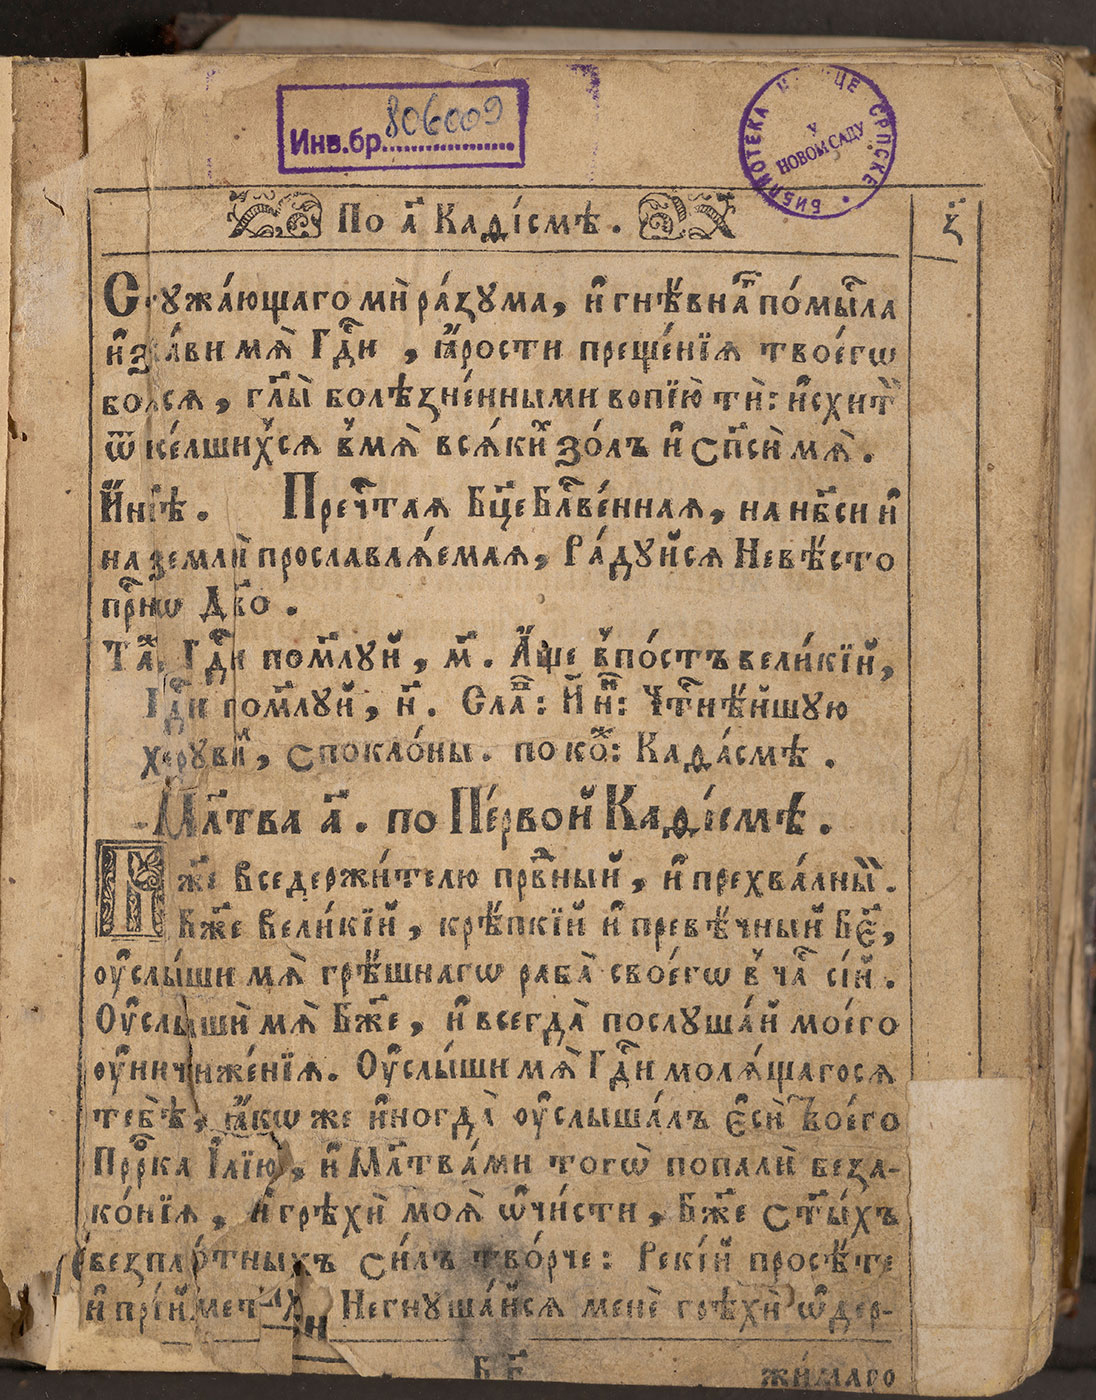 Инв.бр. 806009
БИБЛИОТЕКА СРПСКЕ
У
НОВОМ САДУ
По а҃ Каѳі́смѣ.
ѯ҃
мѝ ра́ꙁума, и҆ гнѣ́внаѧ по́мысла
мѧ̀ Гдⷭ҇и, ꙗ҆́рости преще́нїѧ твоегѡ̀
боѧсѧ, гл҃ы̀ болѣꙁне́нными вопїю̀ тѝ: и҆схит
ѿ ве́ѧ҆ в̾мѧ̀ всѧ́ки ꙁо́лъ и҆ сп҃сѝ мѧ̀.
И҆́нѣ. Пречⷭ҇таѧ Бц҃е Блгⷭ҇ве́ннаѧ, на нб҃си и҆
на ꙁемлѝ прославлѧ́емаѧ, Ра́дуйсѧ Невѣ́сто
прⷭ҇нѡ Дв҃о.
Таⷤ, Гдⷭ҇и пом҃луй, м҃. А҆́ще в̾по́стъ вели́кїй,
Гдⷭ҇и пом҃луй, и҃. Слаⷡ҇: И҆ нⷩ҇: Чⷭ҇тнѣ́йшую
херуви́ⷨ, с поклоны. по коⷤ: Каѳа́смѣ.
Мл҃тва а҃. по Пе́рвой Каѳі́смѣ.
Бж҃е Вседержи́телю пра́вⷣный, и҆ прехва́лный.
Бж҃е Вели́кїй, крѣ́пкїй и҆ превѣ́чный Бж҃е,
ᲂу҆слы́ши мѧ̀ грѣ́шнагѡ раба̀ своегѡ̀ в̾ ча́съ сі́й.
Оу҆слы́шѝ мѧ̀ Бж҃е, и҆ всегда̀ послуша́й моего̀
ᲂу҆ничиже́нїѧ. Оу҆слы́ши мѧ̀ Гдⷭ҇и молѧ́щагосѧ
тебѣ̀, ꙗ҆́кѡ же и҆ногда̀ ᲂу҆слы́шалъ є҆сѝ твоего̀
Прⷪ҇рка І҆лїю̀, и҆ Мл҃тва́ми тогѡ̀ попалѝ беꙁа-
ко́нїѧ, и҆ грѣхѝ моѧ̀ ѡ҆чи́сти, Бж҃е Ст҃ы́хъ
беꙁпло́тныхъ си́лъ тво́рче: Реки́й проси́те
и҆ прі́ймет Негнуша́йсѧ менѐ грѣхѝ ѡ҆дер-
жи́маго